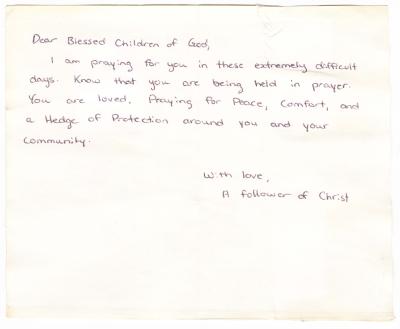 Dear Blessed Children of God,
I am praying for you in these extremely difficult
days. Know that you are being held in prayer.
You are loved. Praying for Peace, Comfort, and
a Hedge of Protection around you and your
Community.
With love,
A follower of Christ